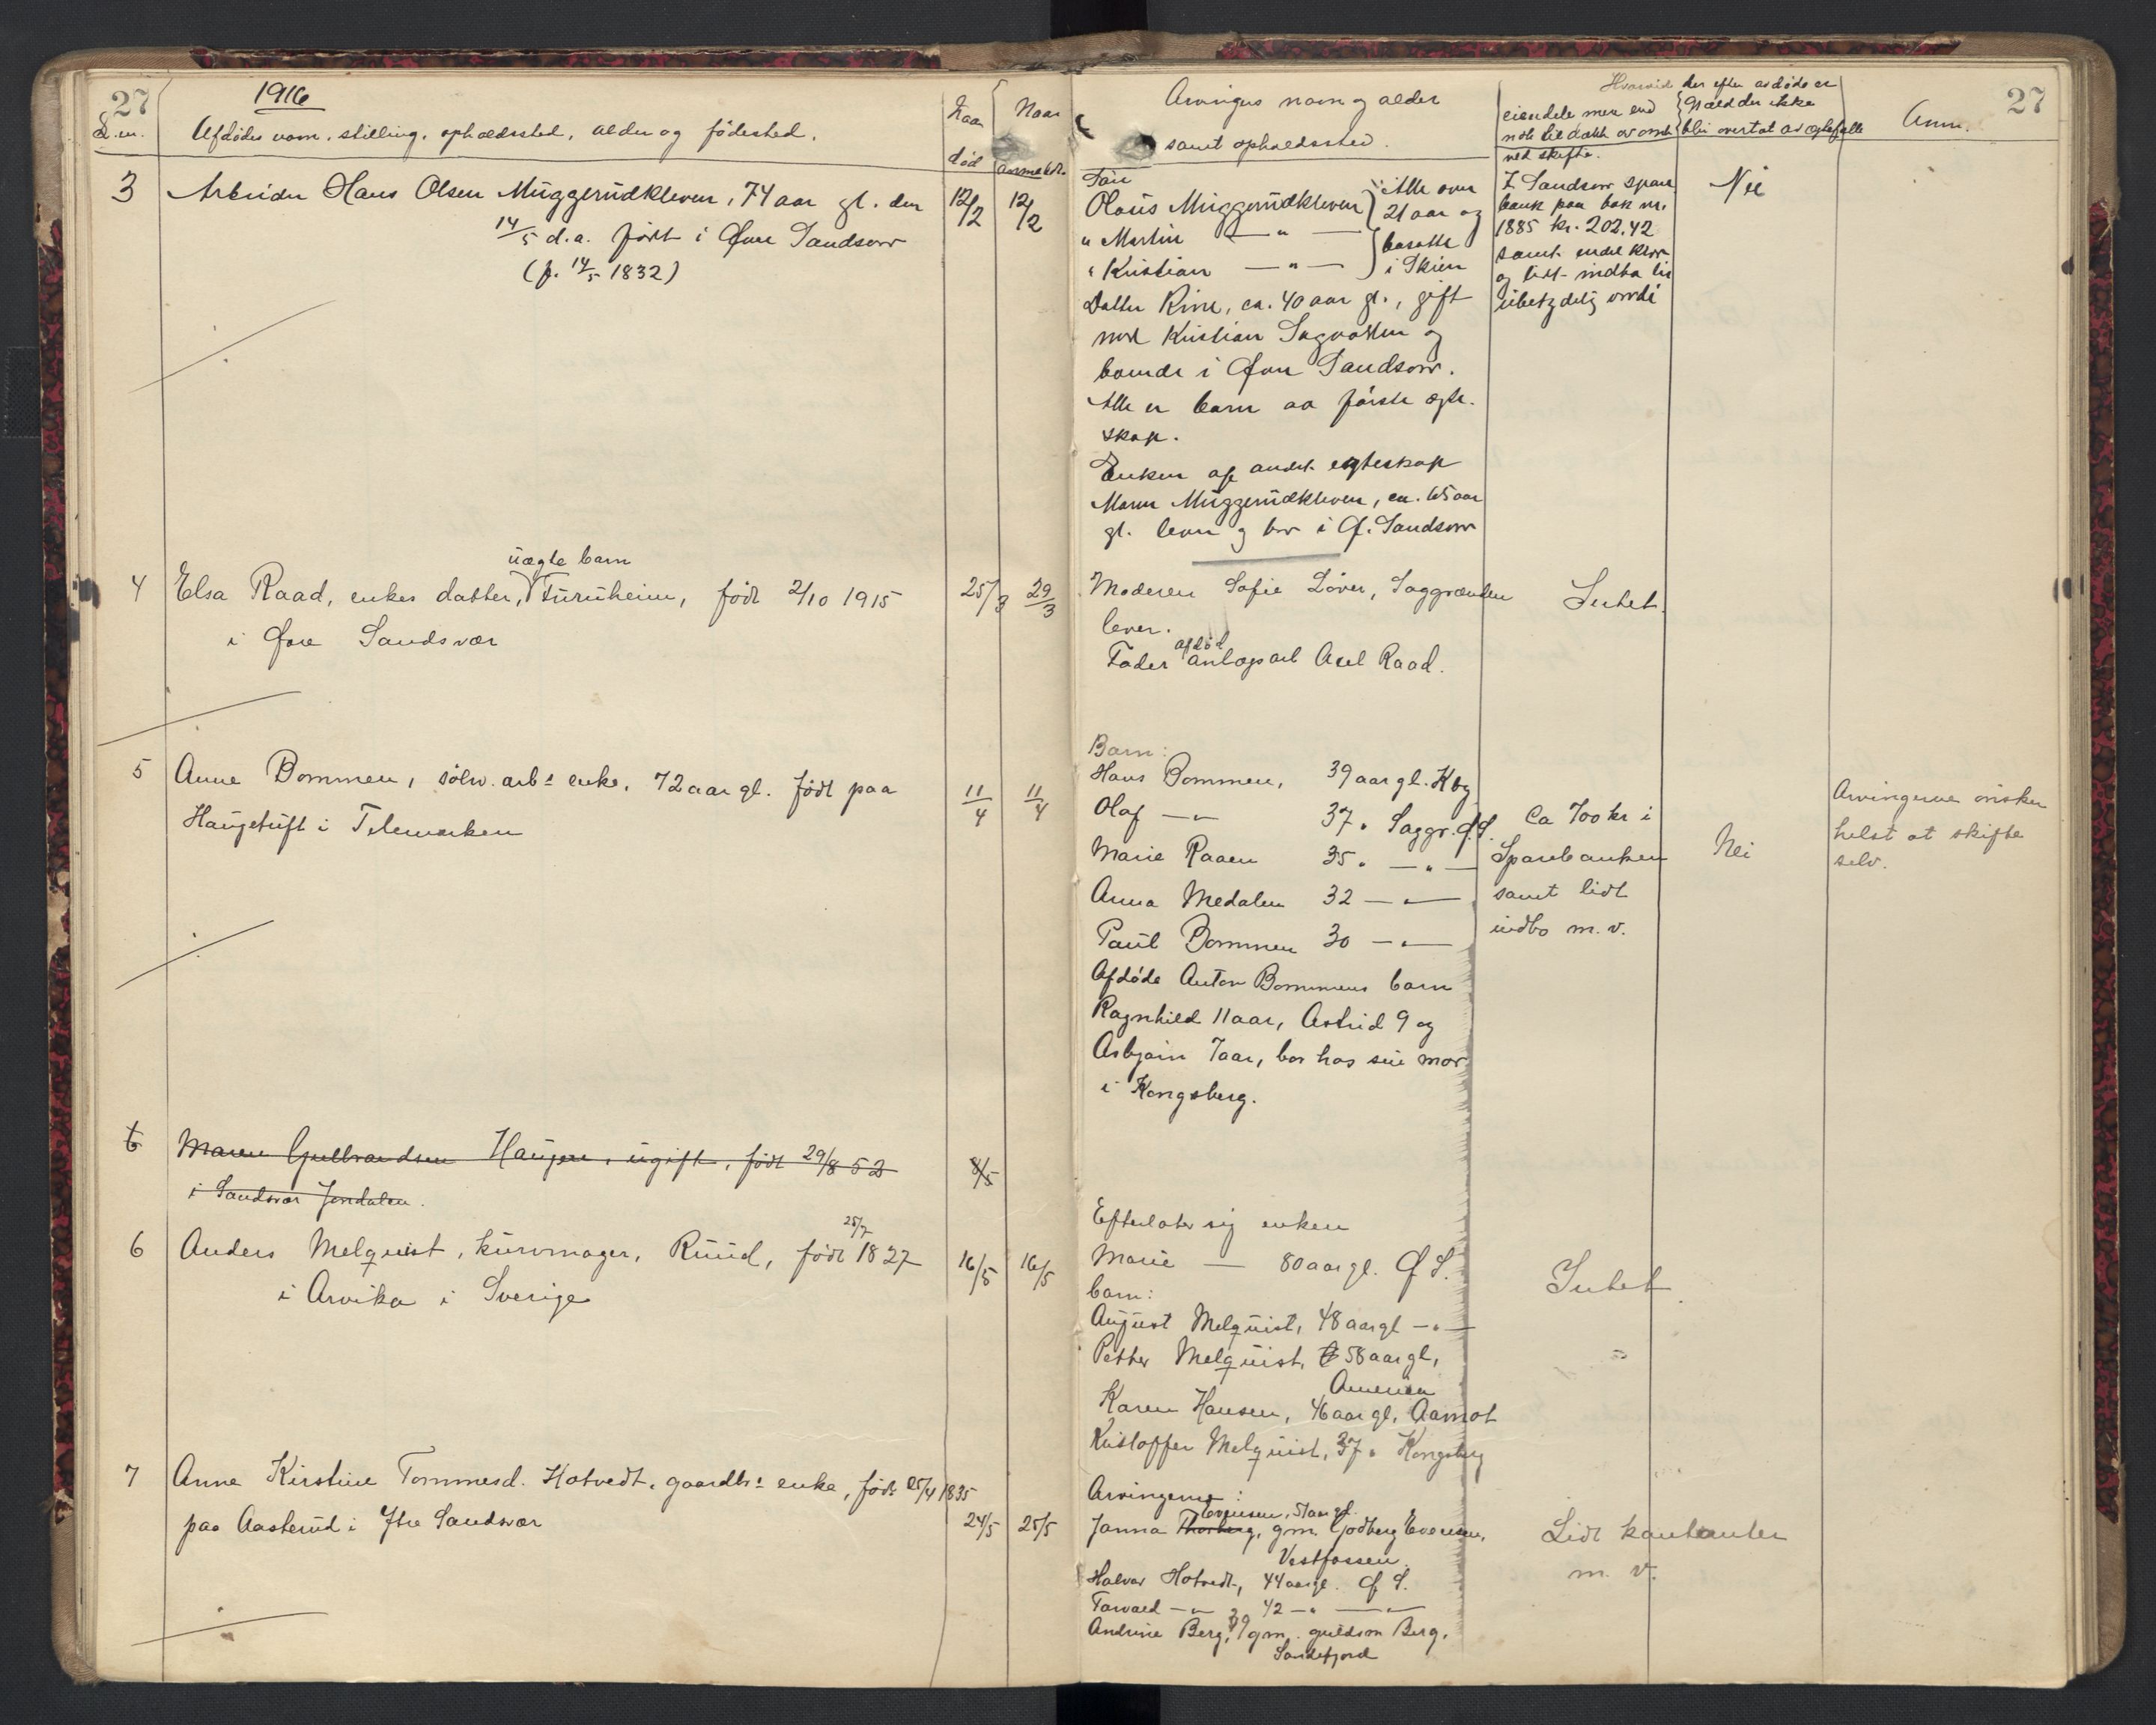 27
1916
L.nr.
Afdødes navn, stilling, opholdssted, alder og fødested.
Naar død
Naar anmeldt
3 Arbeider Hans Olsen Müggerüdkleven, 74 aar gl. den 12/2 12/2
14/5 d.a. født i Øvre Sandsvær
(f. 14/5 1832)
uægte barn
4 Elsa Raad, enkes datter, Fürüheim, født 2/10 1915 25/3 29/3
i Øvre Sandsvær
5 Anne Bommen, sølv.arbs enke, 72 aar gl. født paa 11/4 11/4
Haugetuft i Telemarken
6 Maren Gulbrandsen Haugen, ugift, født 29/8 52 8/5
i Sandsvær Jondalen.
25/7
6 Anders Melquist, kurvmager, Rüüd, født 1827 16/5 16/5
i Arvika i Sverige
7 Anne Kirstine Tommesd. Hotvedt, gaardbrs enke, født 25/4 1835
paa Aasterud i Ytre Sandsvær 24/5 25/5
27
Arvingers navn og alder
samt opholdssted.
Hvorvidt der efter avdøde er
eiendele mer end
nok til dækk av omk
ved skifte.
Gjæld der ikke
bli overtat av egtefælle
Anm.
Søn
Olaüs Müggerüdkleven
" Martin — " —
" Kristian — " —
Alle over
21 aar og
bosatte
i Skien
Datter Rine, ca. 40 aar gl., gift
med Kristian Sagvollen og
boende i Øvre Sandsvær.
Alle er barn av første egte-
skap.
Enken af andet egteskap
Maren Müggerüdkleven, ca. 65 aar
gl. lever og bor i Ø. Sandsvær
I Sandsvær spare
bank paa bok nr.
1885 kr. 202,42
samt endel klær
og lidt indbo til
übetydelig værdi
Nei
Moderen Sofie Løver, Saggrænden
lever.
afdød
Fader anlægsarb Axel Raad.
Intet.
Barn:
Hans Bommen, 39 aar gl. Kbg
Olaf — " — 37 " Saggr. Ø.S.
Marie Raaen 35 " — " —
Anna Medalen 32 — " —
Paül Bommen 30 — " —
Afdøde Anton Bommens barn
Ragnhild 11 aar, Astrid 9 og
Asbjørn 7 aar, bor hos sin mor
i Kongsberg.
Ca 700 kr i
Sparebanken
samt lidt
indbo m.v.
Nei
Arvingerne ønsker
helst at skifte
selv.
Efterlater sig enken
Marie — 80 aar gl. Ø.S.
barn:
Aügüst Melqüist, 48 aar gl — " —
Petter Melqüist, 58 aar gl,
America
Karen Hansen, 46 aar gl, Aamot
Kristoffer Melqüist, 37 " Kongsberg
Intet.
Arvingerne:
Evensen, 51 aar gl.
Janna Thorberg, gm. Godberg Evensen,
Vestfossen.
Halvor Hotvedt, 44 aar gl. Ø S.
Torvald — " — 42 — " — " —
Andrine Berg, 39 gm. guldsm Berg,
Sandefjord
Lidt kontanter
m. v.